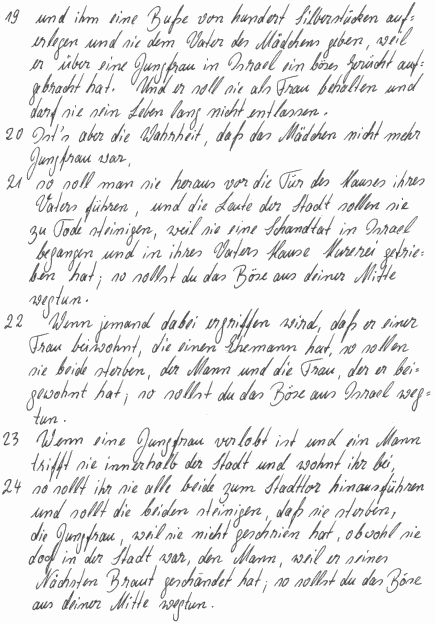 19 und ihm eine Buße von hundert Silberstücken auf=
erlegen und sie dem Vater des Mädchens geben, weil
er über eine Jungfrau in Israel ein böses Gerücht auf=
gebracht hat. Und er soll sie als Frau behalten und
darf sie sein Leben lang nicht entlassen.
20 Ist's aber die Wahrheit, daß das Mädchen nicht mehr
Jungfrau war,
21 so soll man sie heraus vor die Tür des Hauses ihres
Vaters führen, und die Leute der Stadt sollen sie
zu Tode steinigen, weil sie eine Schandtat in Israel
begangen und in ihres Vaters Hause Hurerei getrie=
ben hat; so sollst du das Böse aus deiner Mitte
wegtun.
22 Wenn jemand dabei ergriffen wird, daß er einer
Frau beiwohnt, die einen Ehemann hat, so sollen
sie beide sterben, der Mann und die Frau, der er bei=
gewohnt hat; so sollst du das Böse aus Israel weg=
tun.
23 Wenn eine Jungfrau verlobt ist und ein Mann
trifft sie innerhalb der Stadt und wohnt ihr bei,
24 so sollt ihr sie alle beide zum Stadttor hinausführen
und sollt die beiden steinigen, daß sie sterben,
die Jungfrau, weil sie nicht geschrien hat, obwohl sie
doch in der Stadt war, den Mann, weil er seines
Nächsten Braut geschändet hat; so sollst du das Böse
aus deiner Mitte wegtun.